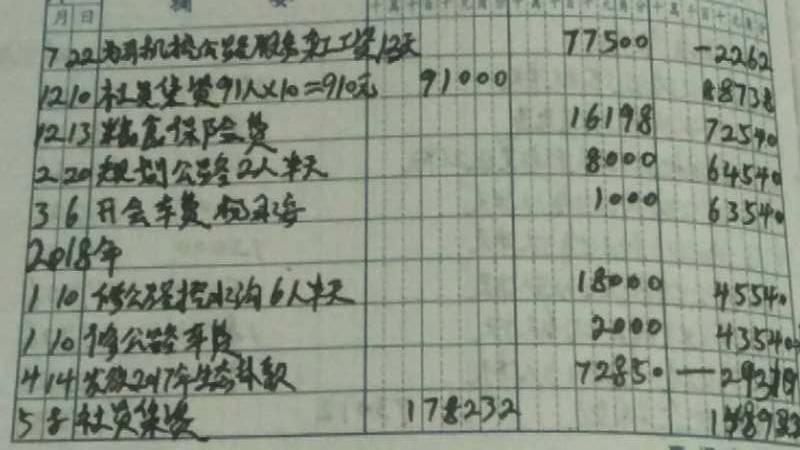 月 日 摘 要
7 22 为开机挖公路服务 工资13天 77500 -2262
12 10 社员集资91人×10=910元 91000 88738
12 13 粮食保险费 16198 72540
2 20 规划公路2人半天 8000 64540
3 6 开会车费 1000 63540
2018年
1 10 修公路挖水沟6人半天 18000 45540
1 10 修公路车费 2000 43540
4 14 发放2017年生态补款 72850 -29310
5 8 社员集资 178232